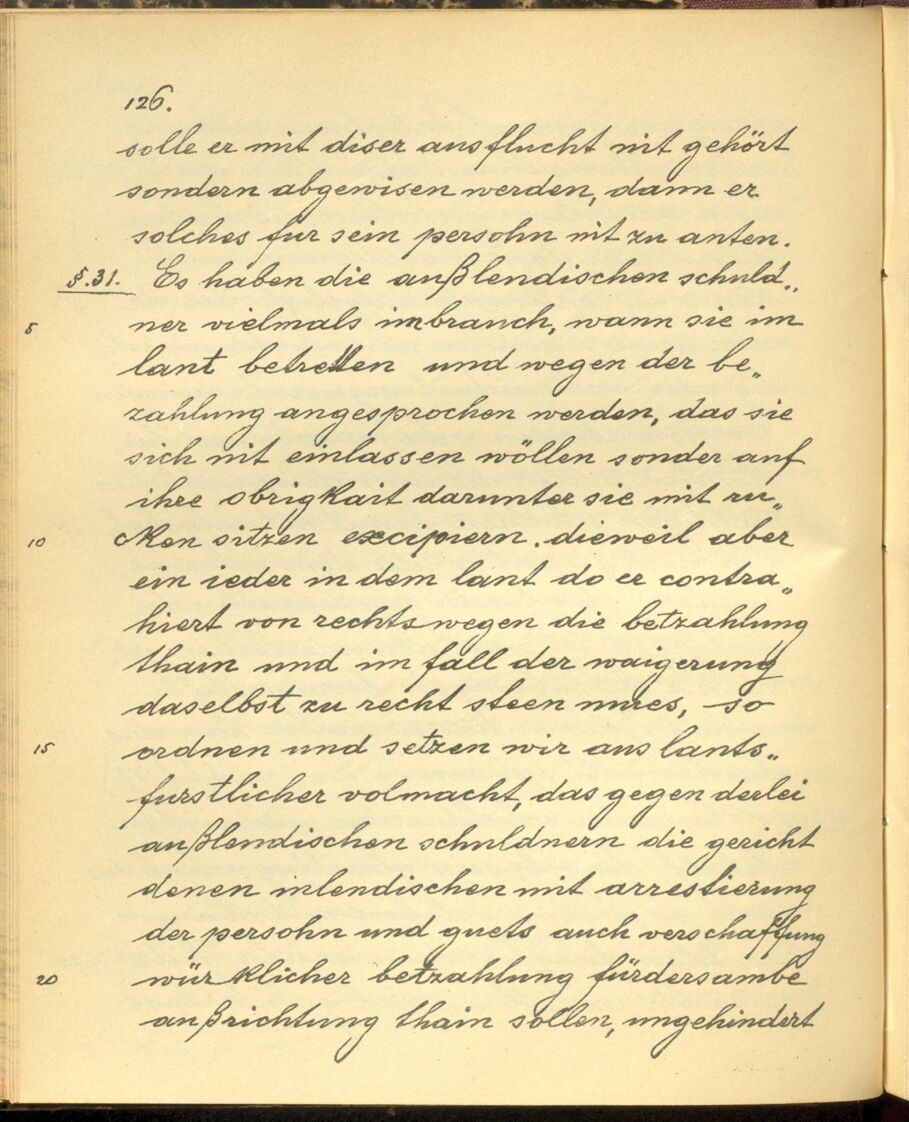 126.
solle er mit diser ausflucht nit gehört
sondern abgewisen werden, dann er
solches fur sein persohn nit zu anten.
§.31. Es haben die außlendischen schuld„
5 ner vielmals imbrauch, wann sie im
lant betretten und wegen der be„
zahlung angesprochen werden, das sie
sich nit einlassen wöllen sonder auf
ihre obrigkait darunter sie mit ru„
10 cken sitzen excipiern. dieweil aber
ein ieder in dem lant do er contra„
hiert von rechts wegen die betzahlung
thain und im fall der waigerung
daselbst zu recht steen mues, so
15 ordnen und setzen wir aus lants„
furstlicher volmacht, das gegen derlei
außlendischen schuldnern die gericht
denen inlendischen mit arrestierung
der persohn und guets auch verschaffung
20 würklicher betzahlung fürdersambe
außrichtung thain sollen, ungehindert